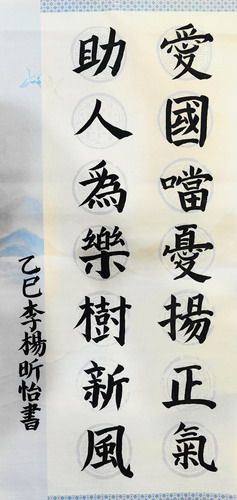 愛國噹憂揚正氣
助人為樂樹新風
乙巳李楊昕怡書